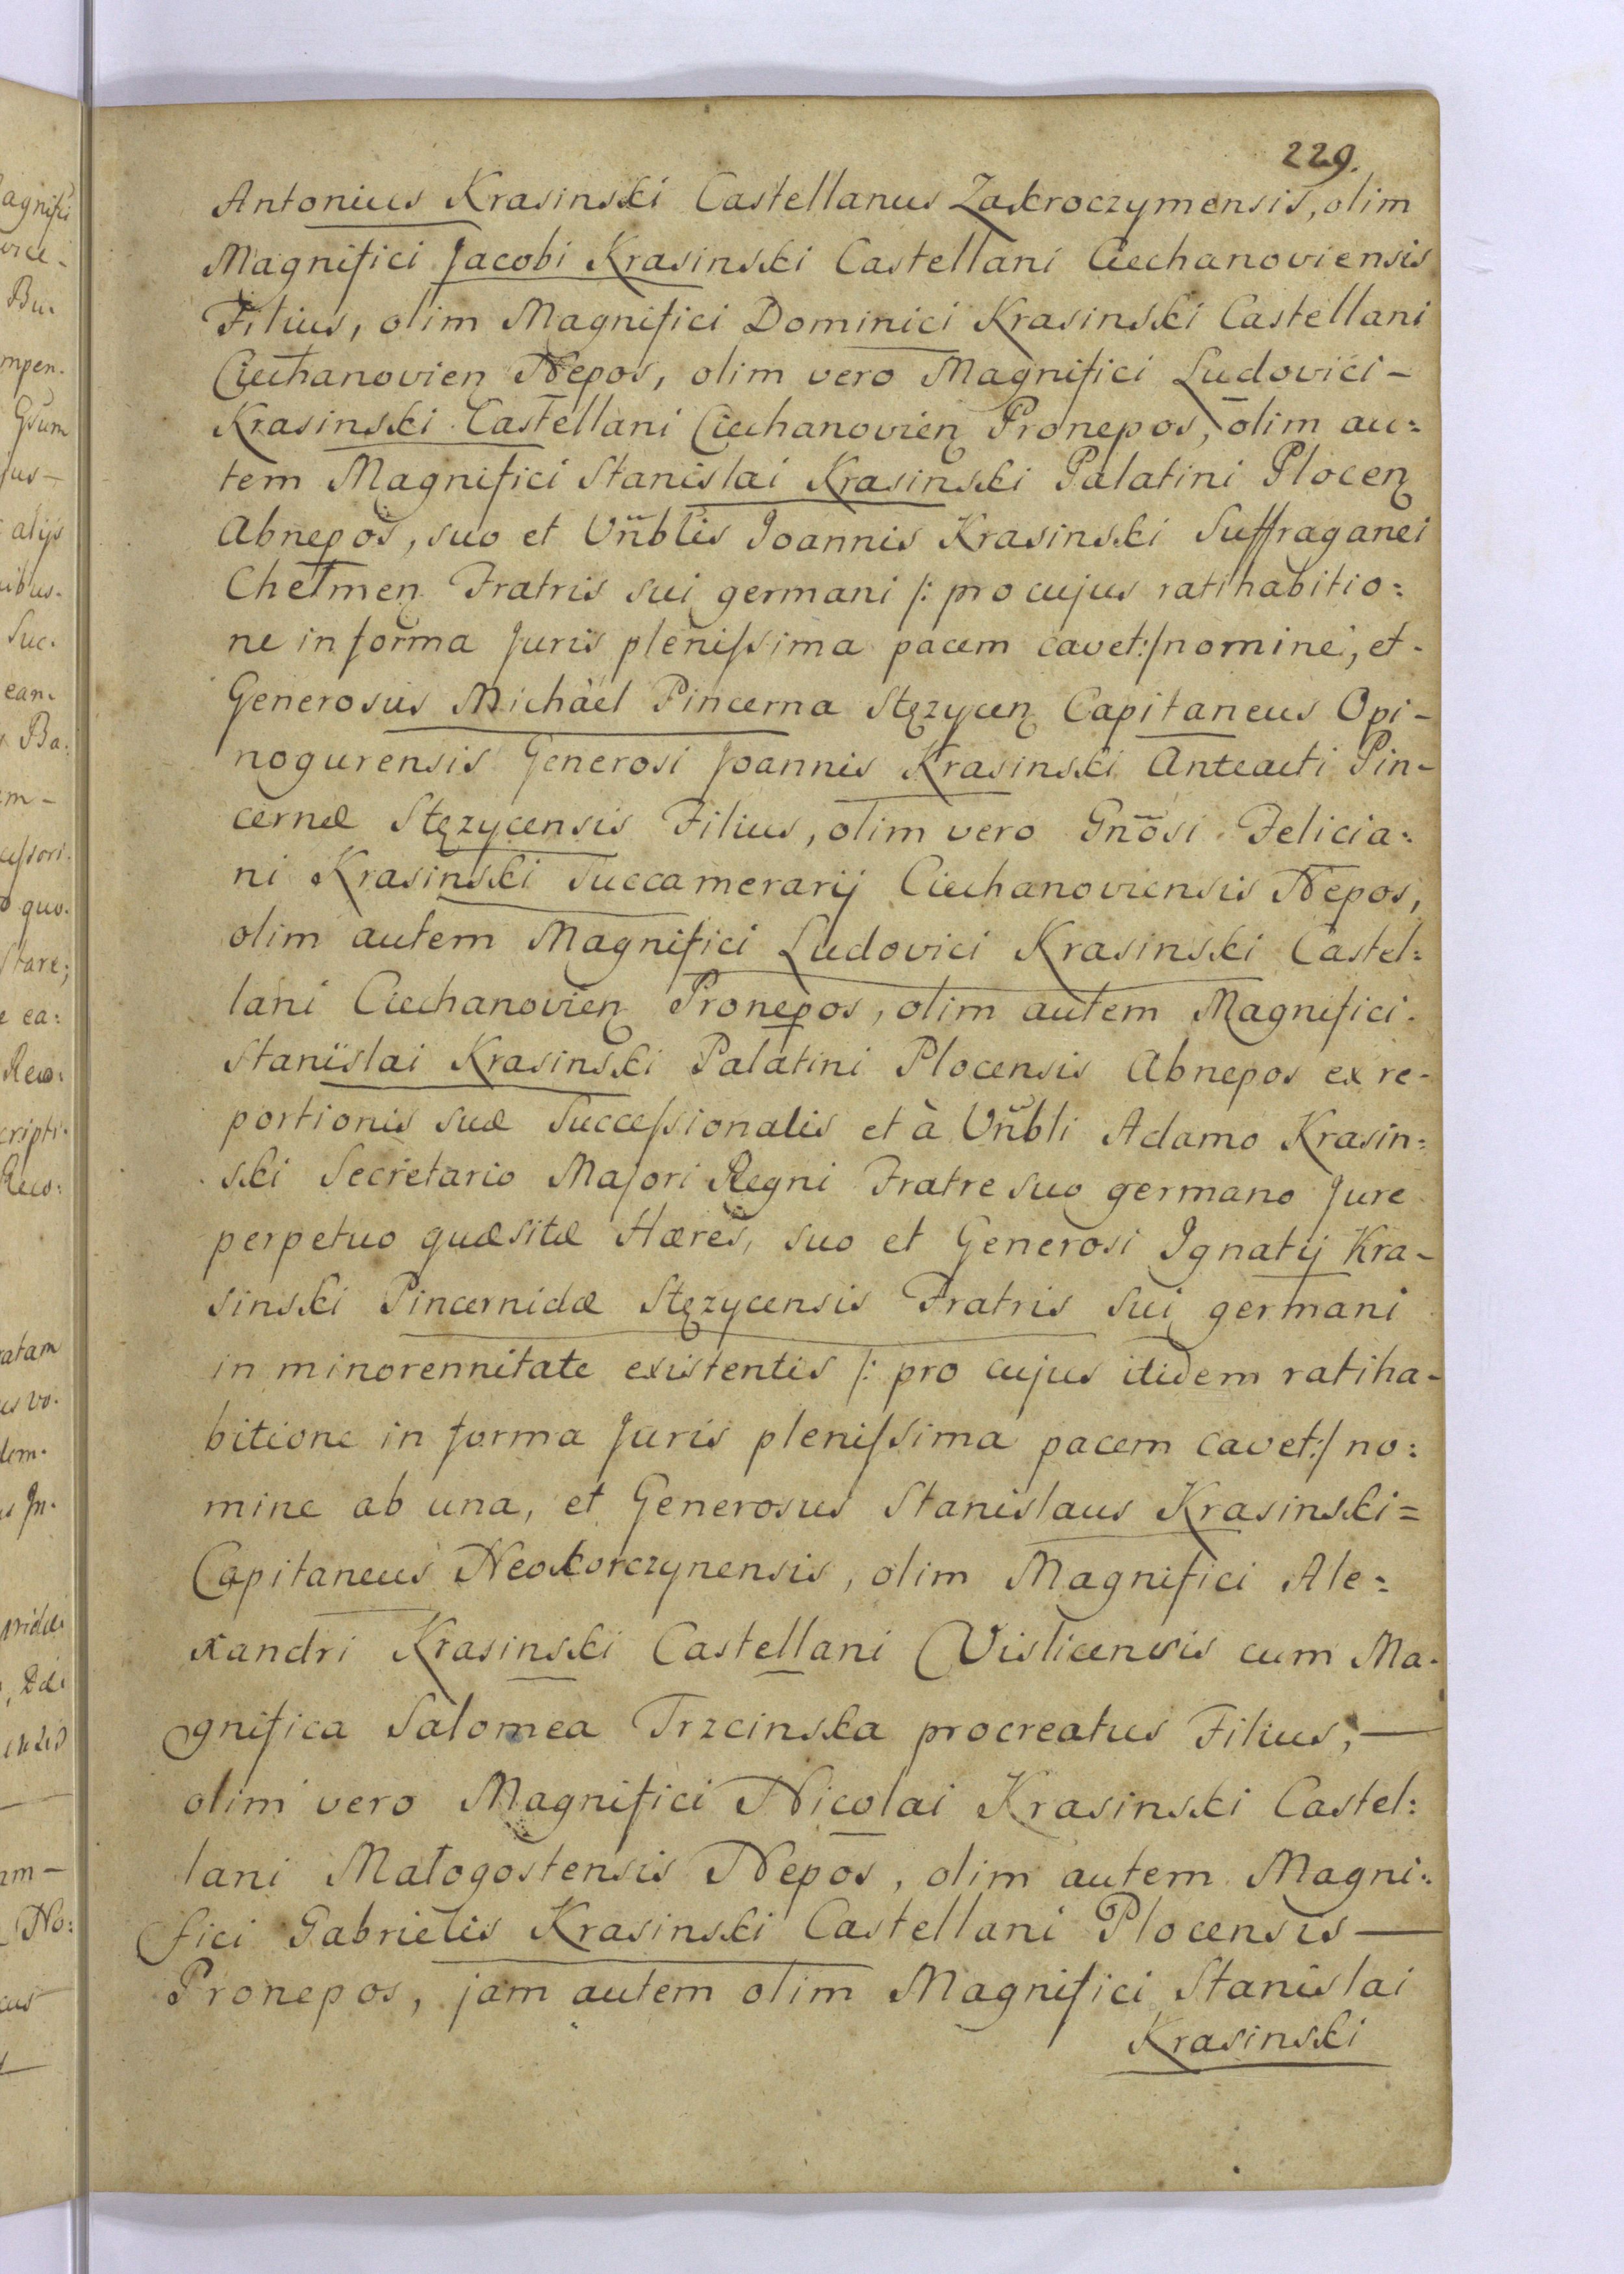 229.
Antonius Krasinski Castellanus Zakroczymensis, olim
Magnifici Jacobi Krasinski Castellani Ciechanoviensis
Filius, olim Magnifici Dominici Krasinski Castellani
Ciechanovien Nepos, olim vero Magnifici Ludovici-
Krasinski Castellani Ciechanovien Pronepos, olim au:
tem Magnifici Stanislai Krasinski Palatini Plocen
Abnepos, suo et Vñblis Joannis Krasinski Suffraganei
Chełmen Fratris sui germani /: pro cujus ratihabitio:
ne in forma Juris plenissima pacem cavet:/ nomine, et-
Generosus Michàel Pincerna Stęzycen Capitaneus Opi-
nogurensis Generosi Joannis Krasinski Anteacti Pin-
cernæ Stęzycensis Filius, olim vero Gnõsi Felicia:
ni Krasinski Succamerarij Ciechanoviensis Nepos,
olim autem Magnifici Ludovici Krasinski Castel:
lani Ciechanovien Pronepos, olim autem Magnifici
Stanislai Krasinski Palatini Plocensis Abnepos ex re-
portionis suæ Successionalis et à Vñbli Adamo Krasin:
ski Secretario Majori Regni Fratre suo germano Jure
perpetuo quæsitæ Hæres, suo et Generosi Ignatij Kra-
sinski Pincernidæ Stęzycensis Fratris sui germani
in minorennitate existentis /: pro cujus itidem ratiha-
bitione in forma Juris plenissima pacem cavet:/ no:
mine ab una, et Generosus Stanislaus Krasinski=
Capitaneus Neokorczynensis, olim Magnifici Ale:
xandri Krasinski Castellani Vislicensis cum Ma-
gnifica Salomea Trzcinska procreatus Filius,—
olim vero Magnifici Nicolai Krasinski Castel:
lani Małogostensis Nepos, olim autem Magni:
fici Gabrielis Krasinski Castellani Plocensis—
Pronepos, jam autem olim Magnifici Stanislai
Krasinski